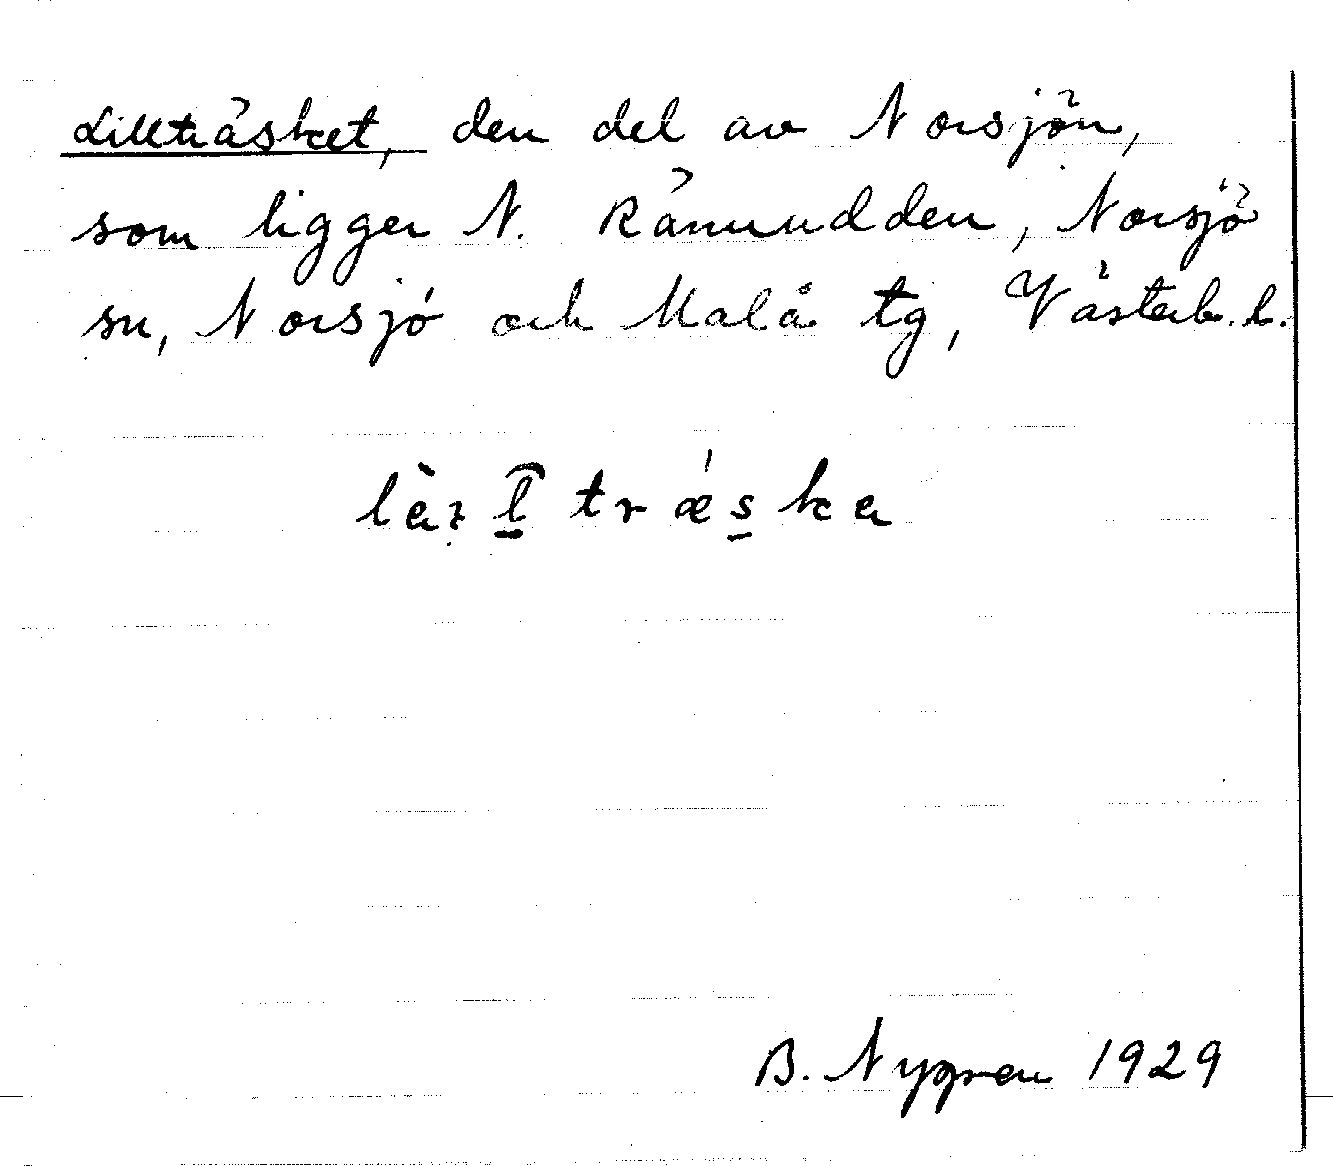 Lillträsket, den del av Norsjön,
som ligger N. Rämudden, Norsjö
sn, Norsjö och Malå tg, Västerb. l.
træska
B. Nygren 1929